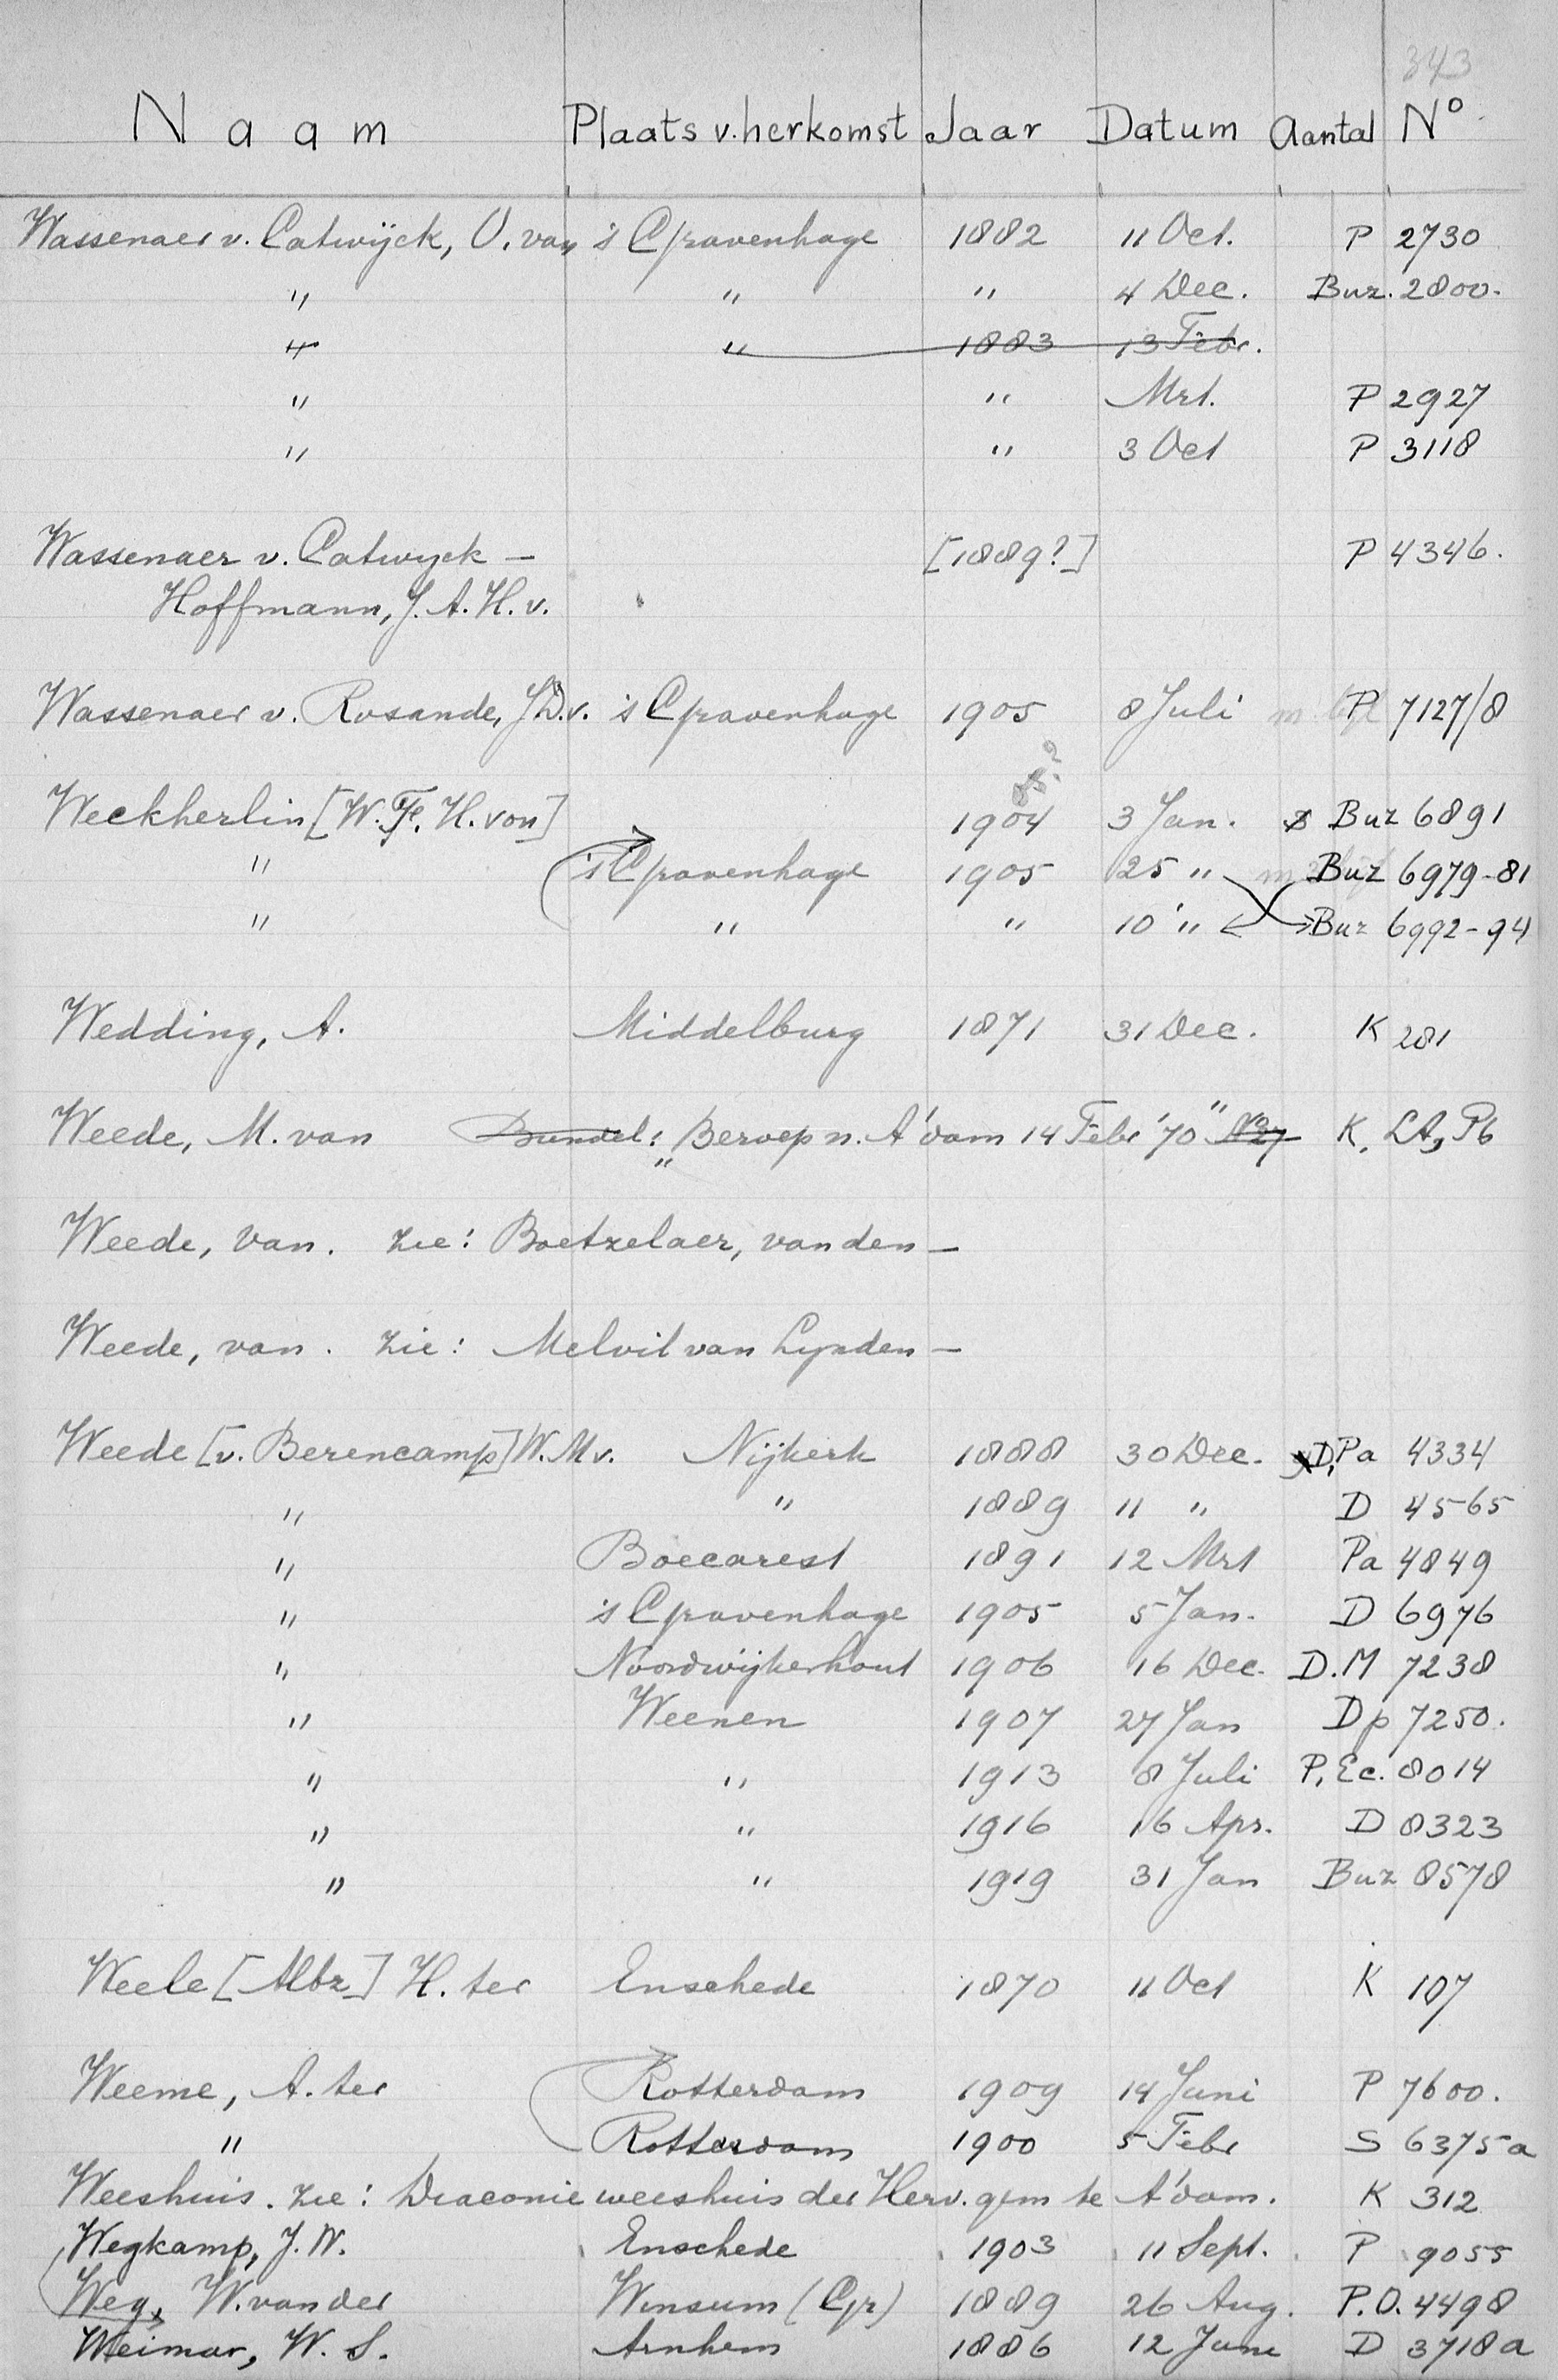 343
Naam Plaats v. herkomst Jaar Datum Aantal No
Wassenaer v. Catwijck, O. van 's Gravenhage 1882 11 Oct. P 2730
" " " 4 Dec. Buz. 2800.
" " 1883 13 Febr.
" " Mrt. P 2927
" " 3 Oct P 3118
Wassenaer v. Catwyck — [1889?] P 4346.
Hoffmann, J. A. H. v.
Wassenaer v. Rosande, J.D.v. 's Gravenhage 1905 8 Juli P 7127/8
Weckherlin [W. F. H. von] 1904 3 Jan. Buz 6891
" 's Gravenhage 1905 25 " Buz 6979-81
" " " 10 " Buz 6992-94
Wedding, A. Middelburg 1871 31 Dec. K 281
Weede, M. van Bundel: "Beroep n. A'dam 14 Febr '70" No 27 K. LA, P6
Weede, van. zie: Boetzelaer, van den —
Weede, van. zie: Melvil van Lynden —
Weede [v. Berencamp] W. M v. Nijkerk 1888 30 Dec. D, Pa 4334
" " 1889 11 " D 4565
" Boecarest 1891 12 Mrt Pa 4849
" 's Gravenhage 1905 5 Jan. D 6976
" Noordwijkerhout 1906 16 Dec. D. M 7238
" Weenen 1907 27 Jan Dp 7250.
" " 1913 8 Juli P, Ec. 8014
" " 1916 16 Apr. D 8323
" " 1919 31 Jan Buz 8578
Weele [Albz] H. ter Enschede 1870 11 Oct K 107
Weeme, A. ter Rotterdam 1909 14 Juni P 7600.
" Rotterdam 1900 5 Febr S 6375a
Weeshuis. zie: Diaconie weeshuis der Herv. gem te A'dam. K 312
Wegkamp, J. W. Enschede 1903 11 Sept. P 9055
Weg, W. van der Winsum (Gr) 1889 26 Aug. P.O. 4498
Weimar, W. S. Arnhem 1886 12 June D 3718a